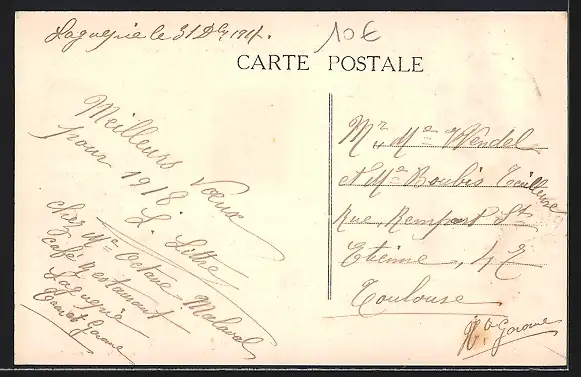 Laguepie le 31 Dbr 1917.
10€
CARTE POSTALE
Meilleurs Vœux
pour 1918
L. Littre
chez Me Octave Malaval
café Restaurant
Laguepie
Tarn et Garonne
Mr, Me Wendel
et Me Boubis Tailleuse
Rue Rempart St
Etienne, 4 E
Toulouse
Hte Garonne